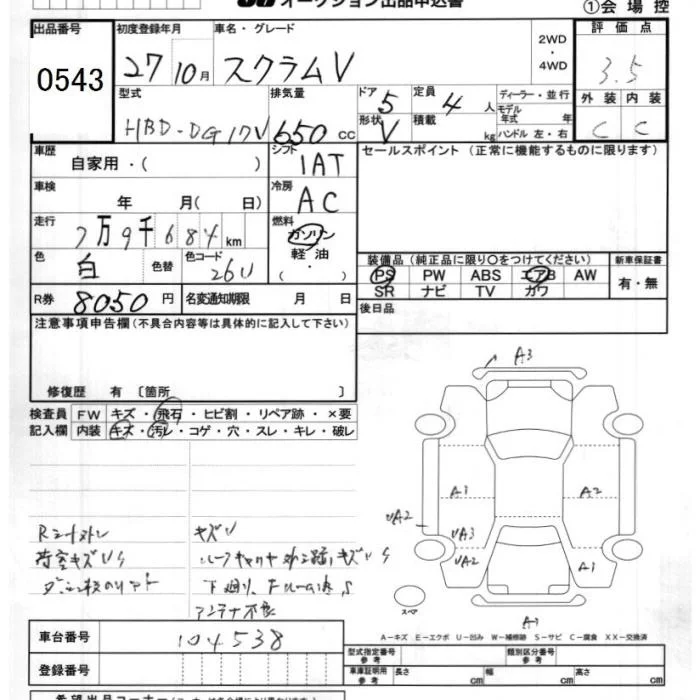 オークション出品申込書
①会場控
出品番号
0543
初度登録年月
27 10月
車名・グレード
スクラムV
2WD
・
4WD
評価点
3.5
外装 内装
C C
型式
HBD-DG17V
排気量
650 cc
ドア 5
形状 V
定員 4 人
積載 kg
ディーラー・並行
モデル年式 年
ハンドル 左・右
車歴
自家用・( )
シフト
IAT
セールスポイント (正常に機能するものに限ります)
車検
年 月( 日)
冷房
AC
走行
7万9千684km
燃料
ガソリン
軽油
( ・ )
色
白
色替
色コード
26U
装備品 (純正品に限り○をつけてください)
PS PW ABS エアB AW
SR ナビ TV カワ
新車保証書
有・無
R券 8050円
名変通期限 月 日
後日品
注意事項申告欄 (不具合内容等は具体的に記入して下さい)
修復歴 有 〔箇所 〕
検査員 FW キズ・飛石・ヒビ割・リペア跡・×要
記入欄 内装 キズ・汚レ・コゲ・穴・スレ・キレ・破レ
キズU
荷室キズUS
下廻り
アンテナ不良
A3
A1
A2
UA2
UA3
UA2
A1
A1
スペア
A−キズ E−エクボ U−凹み W−補修跡 S−サビ C−腐食 XX−交換済
車台番号
104538
登録番号
型式指定番号
参考
類別区分番号
参考
車庫証明用
参考
長さ cm
幅 cm
高さ cm